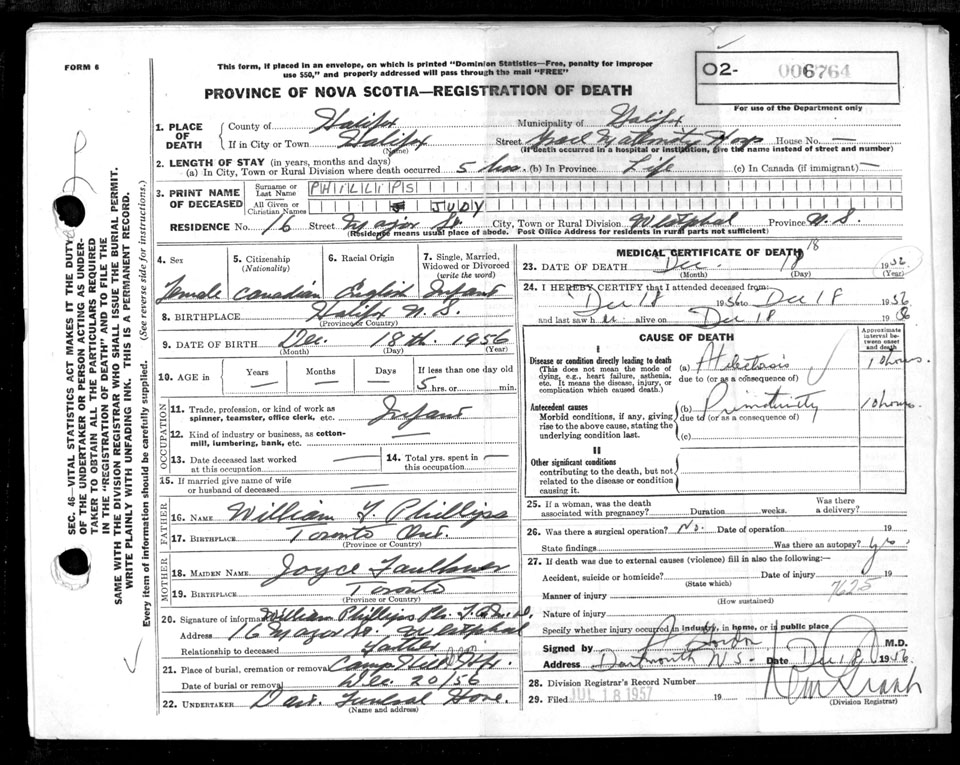 FORM 6
This form, if placed in an envelope, on which is printed "Dominion Statistics—Free, penalty for improper
use $50," and properly addressed will pass through the mail "FREE"
O2- 006764
For use of the Department only
PROVINCE OF NOVA SCOTIA—REGISTRATION OF DEATH
1. PLACE OF DEATH
County of Halifax Municipality of Halifax
If in City or Town Halifax Street Grace Maternity Hosp House No. —
(Name) (If death occurred in a hospital or institution, give the name instead of street and number)
2. LENGTH OF STAY (in years, months and days)
(a) In City, Town or Rural Division where death occurred 5 hrs. (b) In Province Life (c) In Canada (if immigrant) —
3. PRINT NAME OF DECEASED
Surname or Last Name PHILLIPS
All Given or Christian Names JUDY
RESIDENCE No. 16 Street Major St. City, Town or Rural Division Westphal Province N.S.
(Residence means usual place of abode. Post Office Address for residents in rural parts not sufficient)
4. Sex 5. Citizenship (Nationality) 6. Racial Origin 7. Single, Married, Widowed or Divorced (write the word)
Female Canadian English Infant
8. BIRTHPLACE Halifax N.S.
(Province or Country)
9. DATE OF BIRTH Dec. 18th. 1956
(Month) (Day) (Year)
10. AGE IN Years Months Days If less than one day old
— — — 5 hrs. or min.
OCCUPATION
11. Trade, profession, or kind of work as spinner, teamster, office clerk, etc. Infant
12. Kind of industry or business, as cotton-mill, lumbering, bank, etc. —
13. Date deceased last worked at this occupation — 14. Total yrs. spent in this occupation —
15. If married give name of wife or husband of deceased —
FATHER
16. NAME William Phillips
17. BIRTHPLACE Toronto Ont.
(Province or Country)
MOTHER
18. MAIDEN NAME Joyce Faulkner
19. BIRTHPLACE Toronto
(Province or Country)
20. Signature of informant William Phillips
Address 16 Major St. Westphal
Relationship to deceased Father
21. Place of burial, cremation or removal Camp Hill Hfx.
Date of burial or removal Dec. 20/56
22. UNDERTAKER Dart. Funeral Home
(Name and address)
MEDICAL CERTIFICATE OF DEATH
18
23. DATE OF DEATH Dec. 18 1956
(Month) (Day) (Year)
24. I HEREBY CERTIFY that I attended deceased from:
Dec 18 1956 to Dec 18 1956
and last saw her alive on Dec 18 1956
CAUSE OF DEATH
Approximate interval between onset and death
I
Disease or condition directly leading to death
(This does not mean the mode of dying, e.g., heart failure, asthenia, etc. It means the disease, injury, or complication which caused death.)
(a) Atelectasis 10 hours.
due to (or as a consequence of)
Antecedent causes
Morbid conditions, if any, giving rise to the above cause, stating the underlying condition last.
(b) Prematurity 10 hours.
due to (or as a consequence of)
(c)
II
Other significant conditions
contributing to the death, but not related to the disease or condition causing it.
25. If a woman, was the death associated with pregnancy? Duration weeks. Was there a delivery?
26. Was there a surgical operation? No. Date of operation 19
State findings Was there an autopsy? Yes.
27. If death was due to external causes (violence) fill in also the following:—
Accident, suicide or homicide? Date of injury 19
(State which)
Manner of injury 7625
(How sustained)
Nature of injury
Specify whether injury occurred in industry, in home, or in public place
Signed by M.D.
Address Dartmouth N.S. Date Dec 18 1956.
28. Division Registrar's Record Number
29. Filed JUL 18 1957 19
(Division Registrar)
SEC. 46—VITAL STATISTICS ACT MAKES IT THE DUTY
OF THE UNDERTAKER OR PERSON ACTING AS UNDER-
TAKER TO OBTAIN ALL THE PARTICULARS REQUIRED
IN THE "REGISTRATION OF DEATH" AND TO FILE THE
SAME WITH THE DIVISION REGISTRAR WHO SHALL ISSUE THE BURIAL PERMIT.
WRITE PLAINLY WITH UNFADING INK. THIS IS A PERMANENT RECORD.
Every item of information should be carefully supplied. (See reverse side for instructions.)